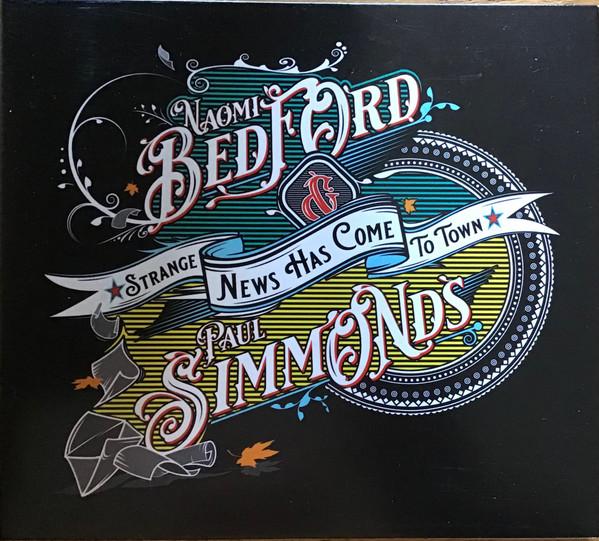 NAOMI
BEDFORD
&
STRANGE NEWS HAS COME TO TOWN
PAUL
SIMMONDS